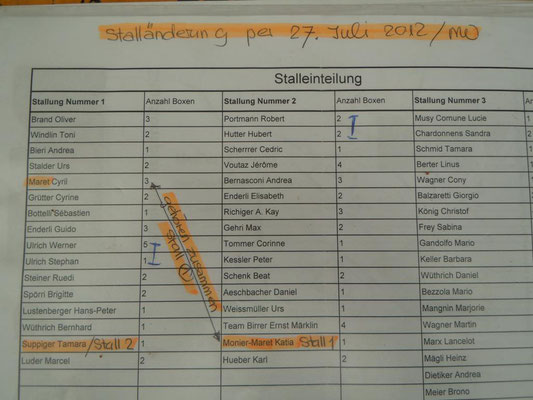 Stalländerung per 27. Juli 2012 / MW
Stalleinteilung
Stallung Nummer 1 Anzahl Boxen Stallung Nummer 2 Anzahl Boxen Stallung Nummer 3
Brand Oliver 3 Portmann Robert 2 Musy Comune Lucie 1
Windlin Toni 2 Hutter Hubert 2 Chardonnens Sandra 2
Bieri Andrea 1 Scherrrer Cedric 1 Schmid Tamara 1
Stalder Urs 2 Voutaz Jérôme 4 Berter Linus
Maret Cyril 3 Bernasconi Andrea 3 Wagner Cony
Grütter Cyrine 2 Enderli Elisabeth 2 Balzaretti Giorgio
Bottelli Sébastien 1 Richiger A. Kay 3 König Christof
Enderli Guido 3 Gehri Max 2 Frey Sabina
Ulrich Werner 5 Tommer Corinne 1 Gandolfo Mario
Ulrich Stephan 1 Kessler Peter 1 Keller Barbara
Steiner Ruedi 2 Schenk Beat 2 Wüthrich Daniel
Spörri Brigitte 2 Aeschbacher Daniel 1 Bezzola Mario
Lustenberger Hans-Peter 1 Weissmüller Urs 1 Mangnin Marjorie
Wüthrich Bernhard 1 Team Birrer Ernst Märklin 4 Wagner Martin
Suppiger Tamara / Stall 2 1 Monier-Maret Katia Stall 1 1 Marx Lancelot
Luder Marcel 2 Hueber Karl 2 Mägli Heinz
Dietiker Andrea
Meier Bruno
gehören zusammen
Stall 1